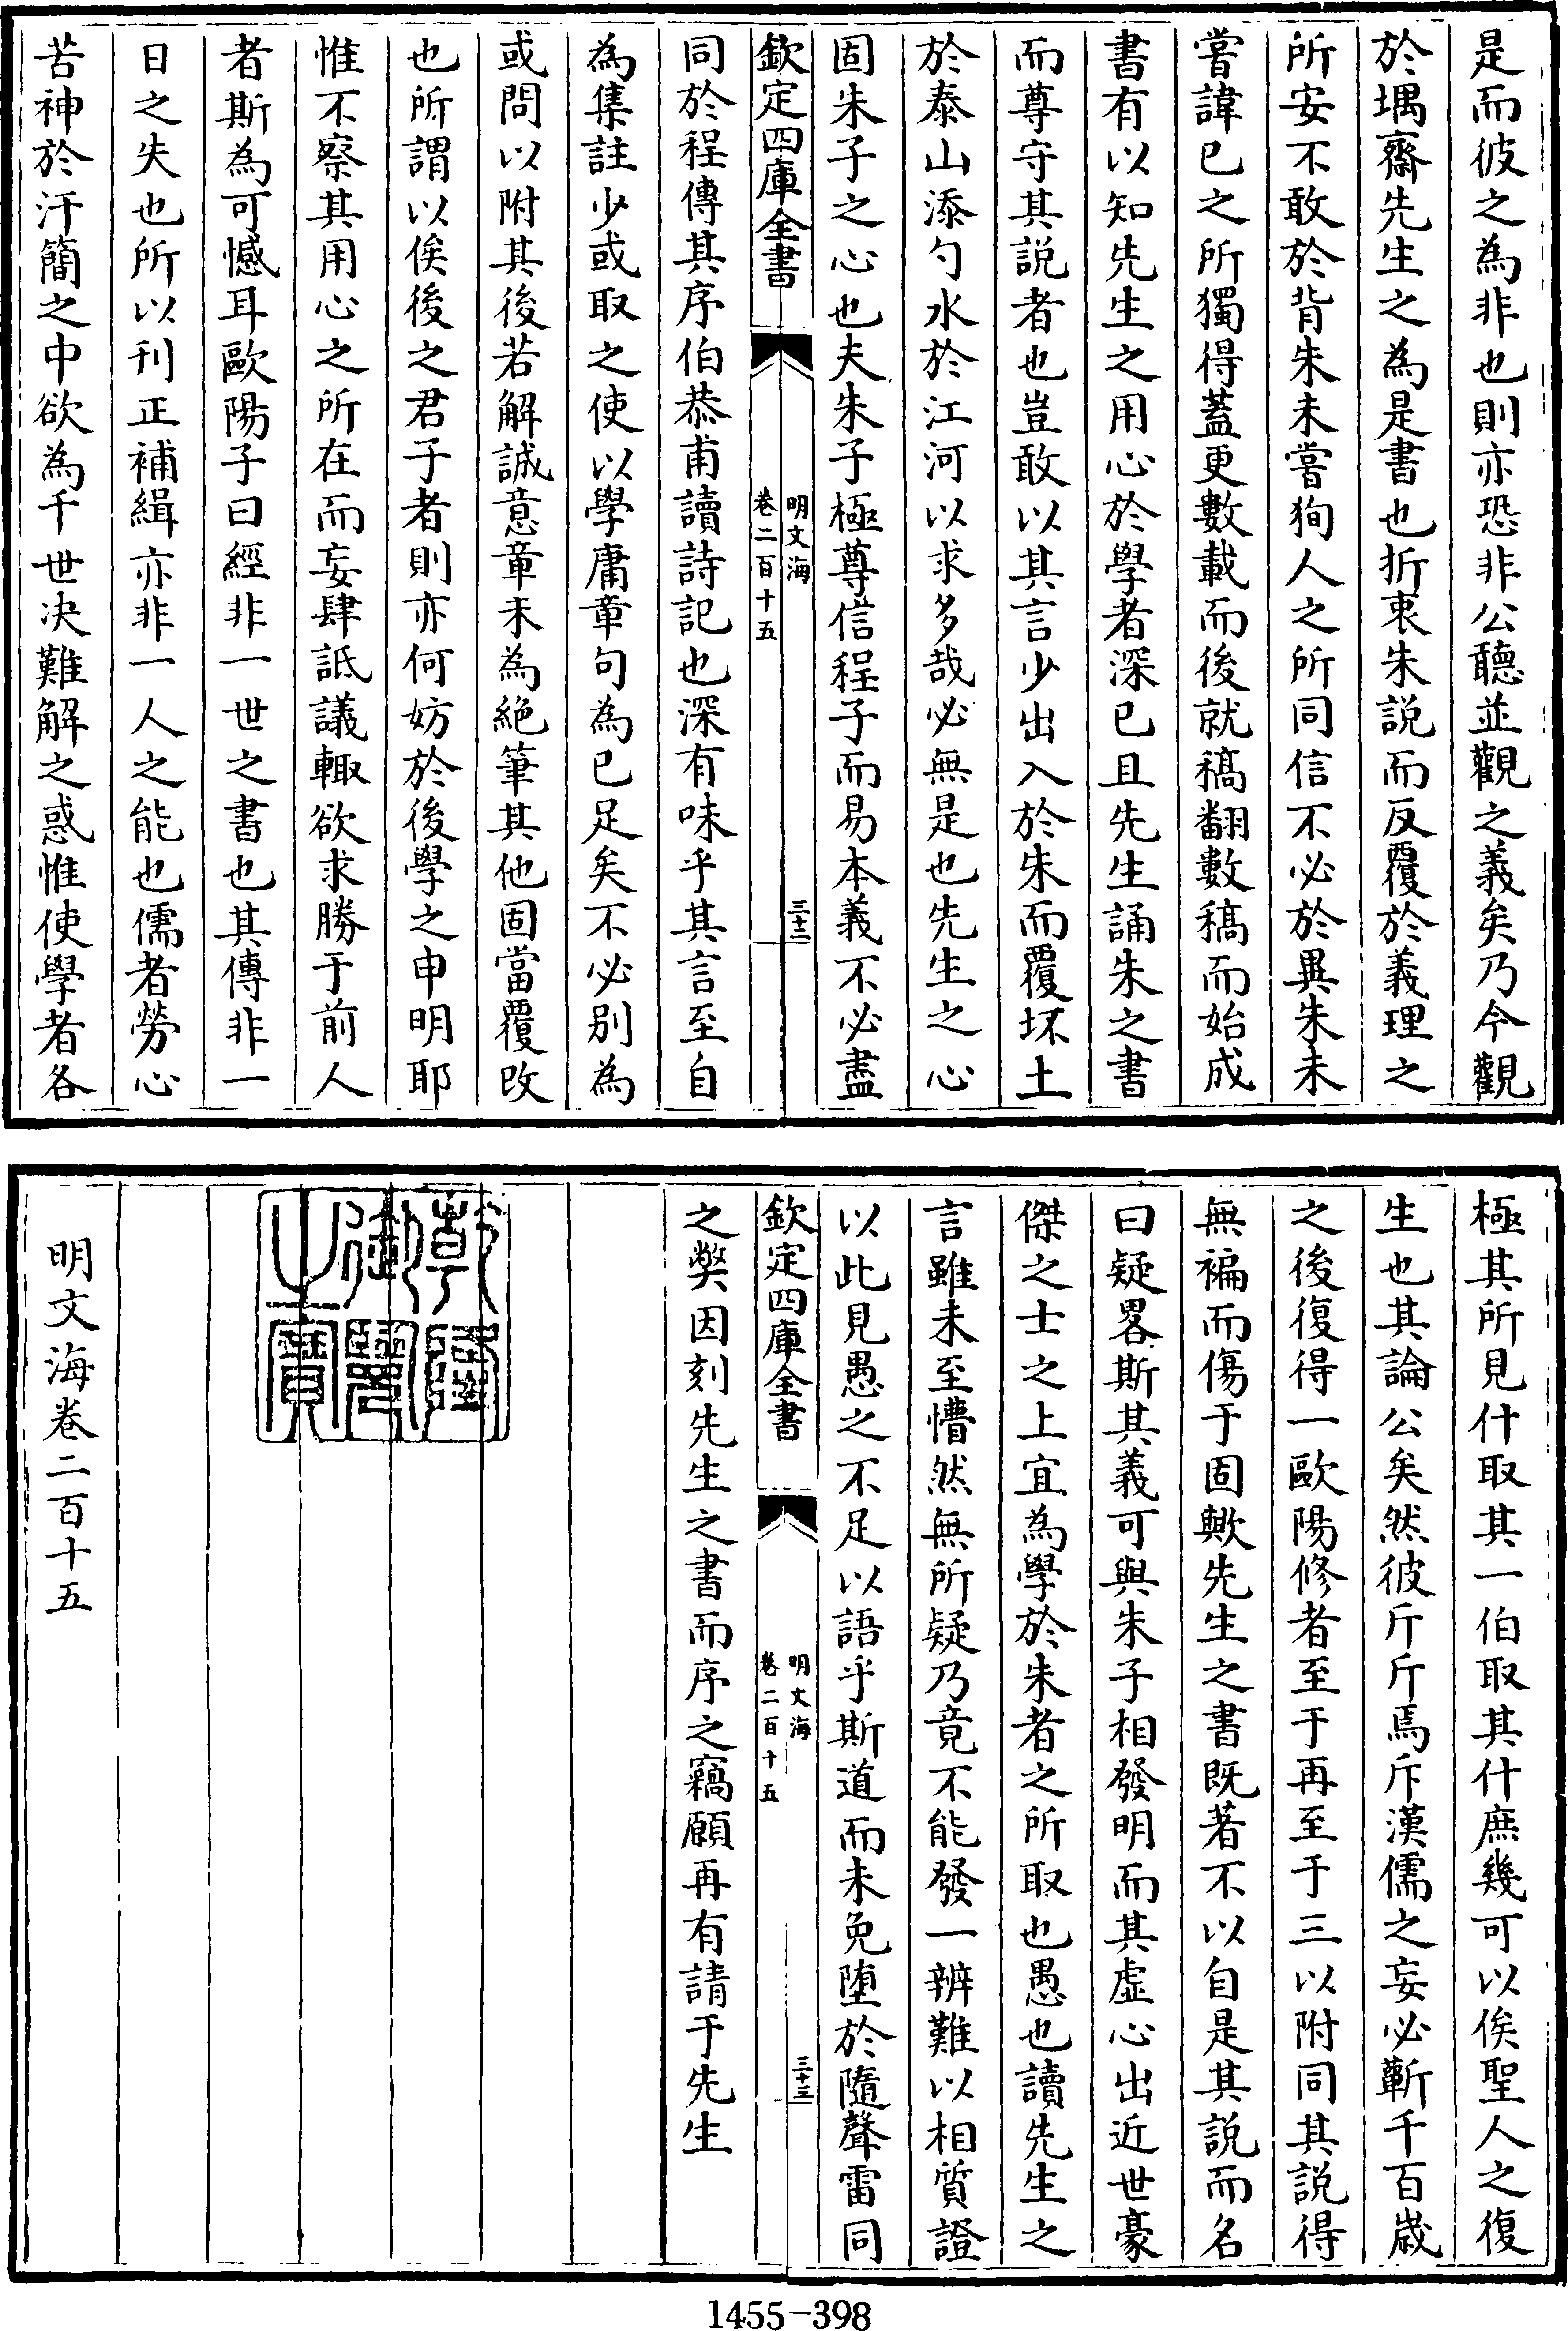 是而彼之為非也則亦恐非公聽並觀之義矣乃今觀
於堣齋先生之為是書也折衷朱說而反覆於義理之
所安不敢於背朱未嘗狥人之所同信不必於異朱未
嘗諱已之所獨得蓋更數載而後就稿翻數稿而始成
書有以知先生之用心於學者深已且先生誦朱之書
而尊守其説者也豈敢以其言少出入於朱而覆坏土
於泰山添勺水於江河以求多哉必無是也先生之心
固朱子之心也夫朱子極尊信程子而易本義不必盡
欽定四庫全書
明文海
卷二百十五
三十二
同於程傳其序伯恭甫讀詩記也深有味乎其言至自
為集註少或取之使以學庸章句為已足矣不必別為
或問以附其後若解誠意章未為絶筆其他固當覆改
也所謂以俟後之君子者則亦何妨於後學之申明耶
惟不察其用心之所在而妄肆詆議輙欲求勝于前人
者斯為可憾耳歐陽子曰經非一世之書也其傳非一
日之失也所以刋正補緝亦非一人之能也儒者勞心
苦神於汗簡之中欲為千世决難解之惑惟使學者各
極其所見什取其一伯取其什庶幾可以俟聖人之復
生也其論公矣然彼斤斤焉斥漢儒之妄必蘄千百歲
之後復得一歐陽修者至于再至于三以附同其説得
無褊而傷于固歟先生之書既著不以自是其説而名
曰疑畧斯其義可與朱子相發明而其虛心出近世豪
傑之士之上宜為學於朱者之所取也愚也讀先生之
言雖未至懵然無所疑乃竟不能發一辨難以相質證
以此見愚之不足以語乎斯道而未免堕於隨聲雷同
欽定四庫全書
明文海
卷二百十五
三十三
之獘因刻先生之書而序之竊願再有請于先生
乾隆御覽之寶
明文海卷二百十五
1455-398